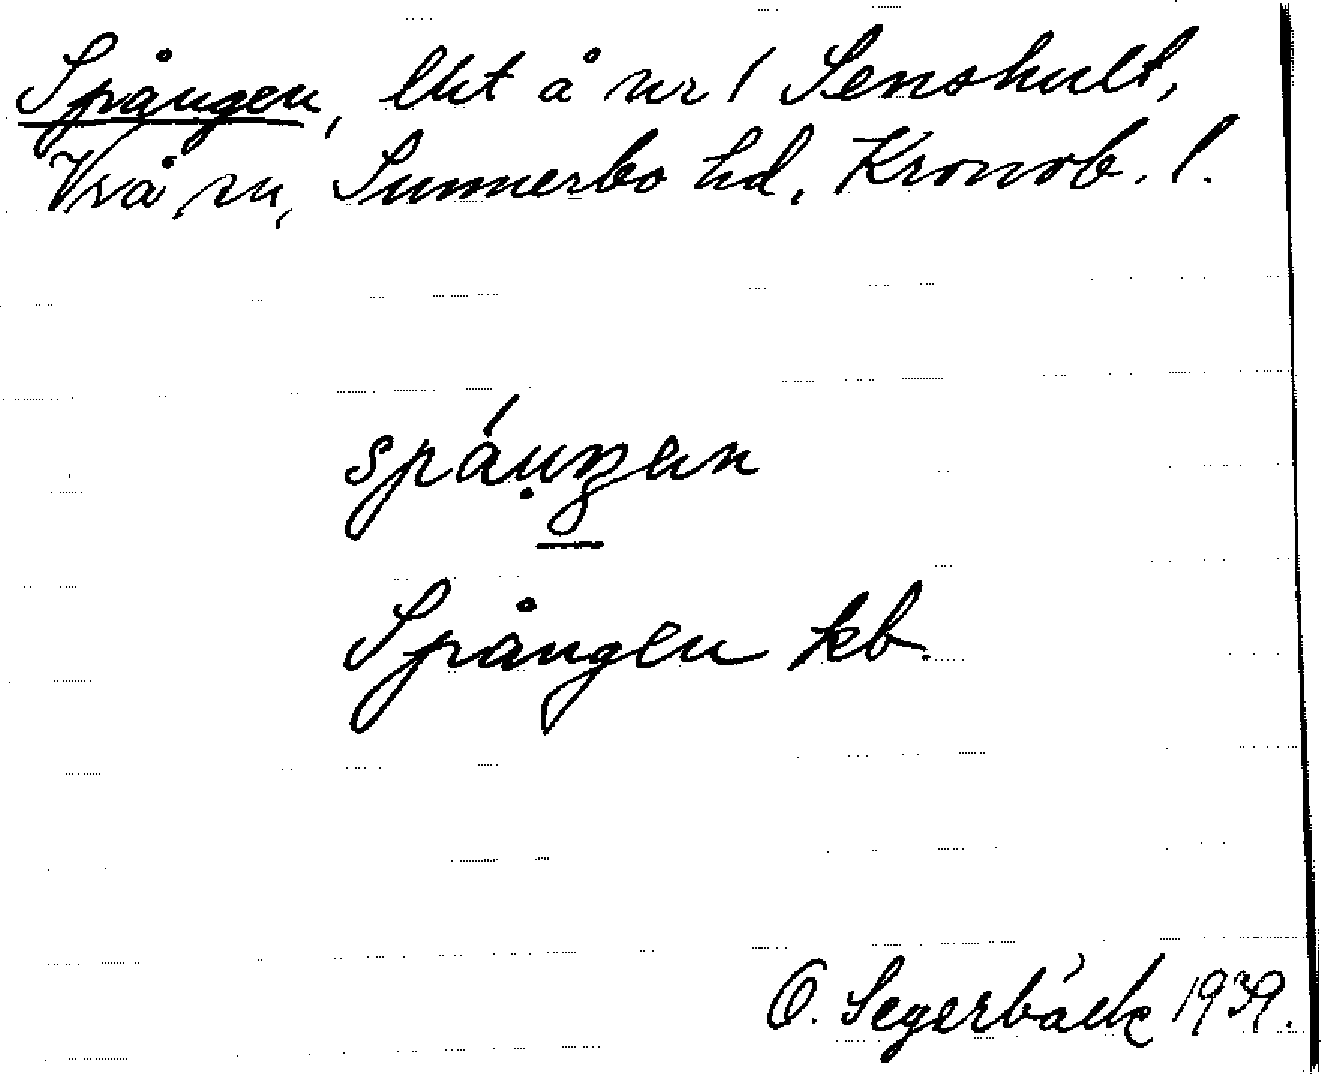 Spången, lht å nr 1 Senshult,
Vrå sn, Sunnerbo hd, Kronob. l.
Spången kb.
O. Segerbäck 1939.